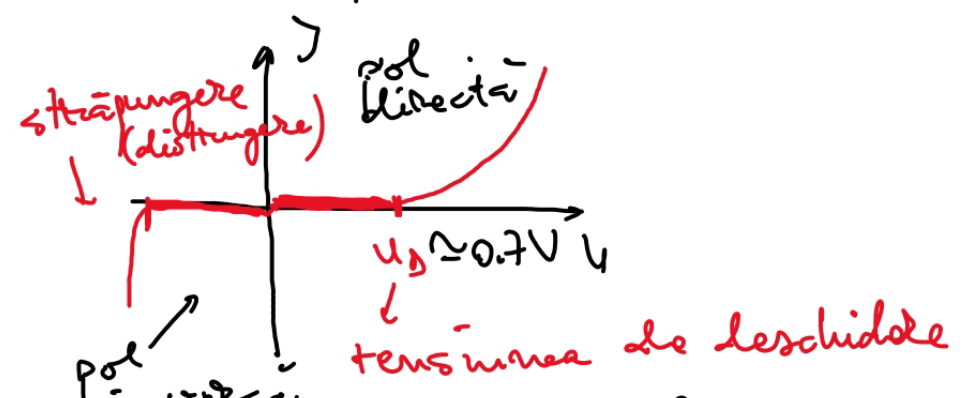 J
pol
directă
străpungere
(distrugere)
U_D ≃ 0.7V U
tensiunea de deschidere
pol